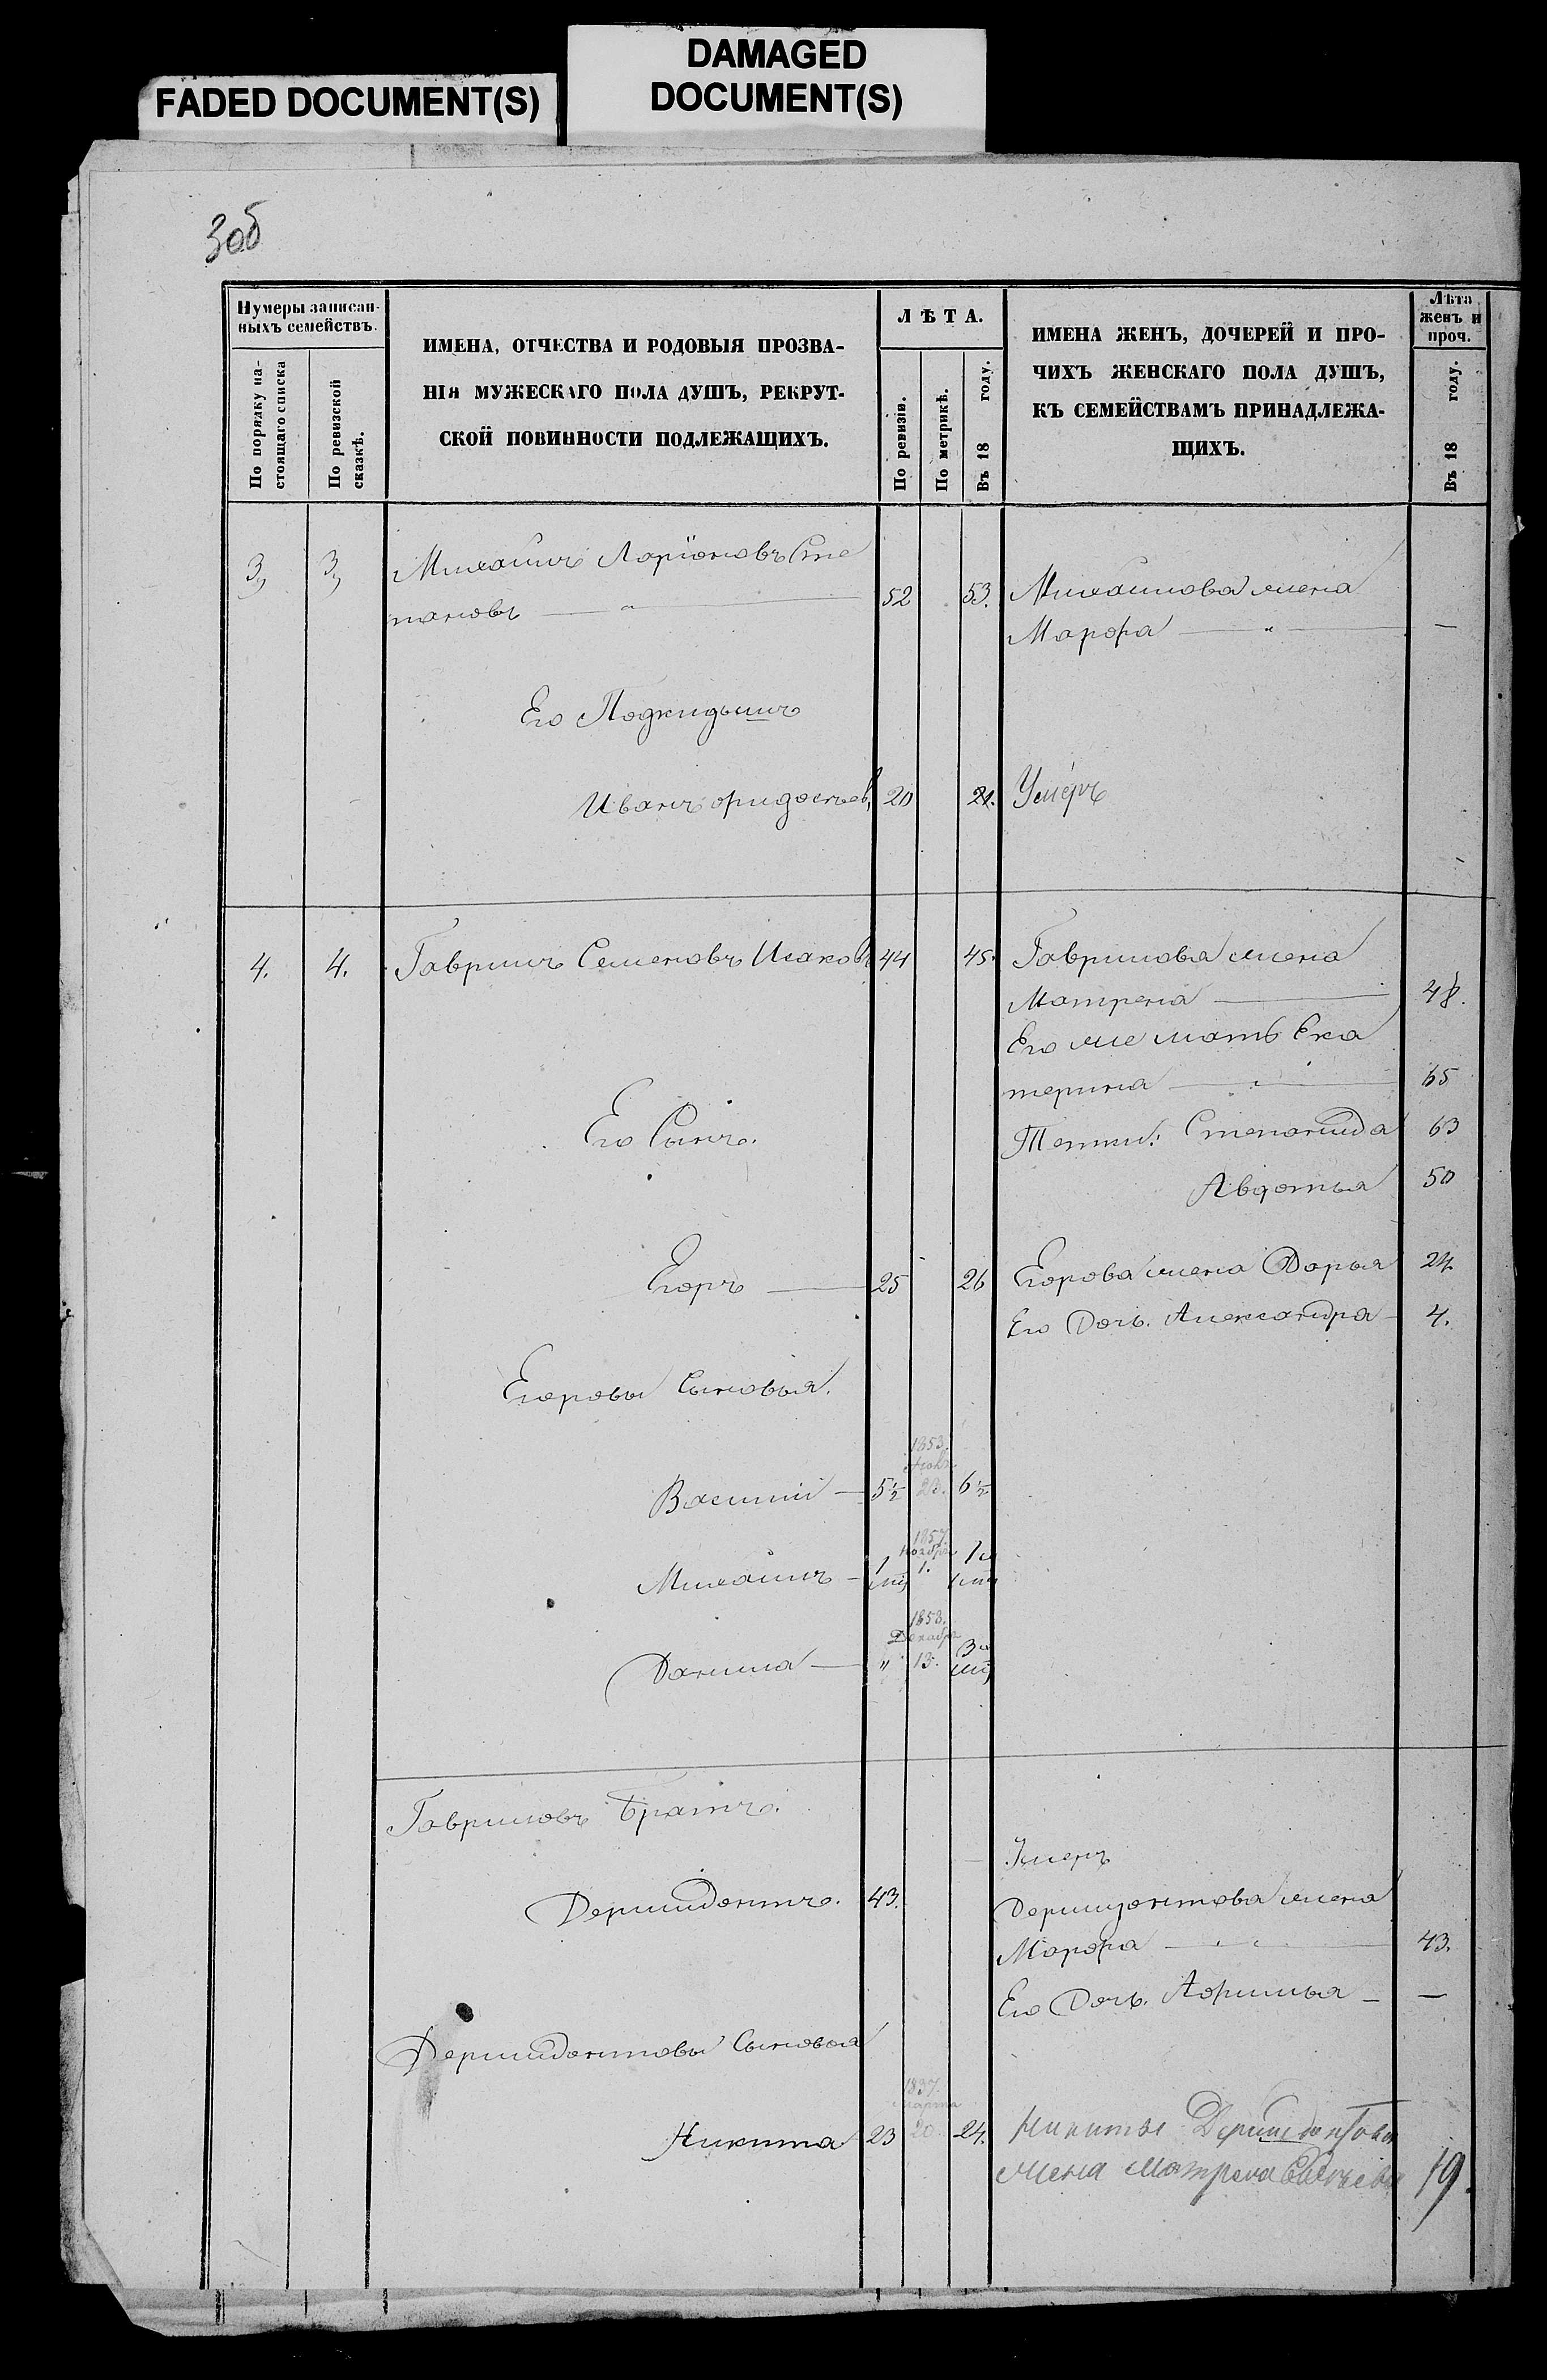 FADED DOCUMENT(S)
DAMAGED
DOCUMENT(S)
Нумеры записан-
ныхъ семействъ.
По порядку на-
стоящаго списка
По ревизской
сказкѣ.
ИМЕНА, ОТЧЕСТВА И РОДОВЫЯ ПРОЗВА-
НІЯ МУЖЕСКАГО ПОЛА ДУШЪ, РЕКРУТ-
СКОЙ ПОВИННОСТИ ПОДЛЕЖАЩИХЪ.
ЛѢТА.
По ревизіи.
По метрикѣ.
Въ 18 году.
ИМЕНА ЖЕНЪ, ДОЧЕРЕЙ И ПРО-
ЧИХЪ ЖЕНСКАГО ПОЛА ДУШЪ,
КЪ СЕМЕЙСТВАМЪ ПРИНАДЛЕЖА-
ЩИХЪ.
Лѣта
женъ и
проч.
Въ 18 году.
3, 3, Михаилъ Ларіоновъ Сте
пановъ — " — 52 53. Михаилова жена
Марфа — " — —
Его Подкидышъ
Иванъ 20 21. Умеръ
4. 4. Гаврилъ Семеновъ Исаковъ 44 45. Гаврилова жена
Матрена — 48.
Его же мать Ека
терина — " — 65
Его Сынъ.
Тетки: Степанида 63
Авдотья 50
Егоръ — 25 26 Егорова жена Дарья 24
Его Дочь. Александра — 4.
Егоровы Сыновья.
1853.
Василій — 5½ 6½
1857
Ноября
Михаилъ — 1 1.
1858.
Декабря
Данила — " 13. 3
Гавриловъ Братъ.
Умеръ
Дермидонтъ. 43. Дермидонтова жена
Марфа — " — 43.
Его Дочь. Афимья — —
Дермидонтовы Сыновья
1837.
Марта
Никита 23 20. 24. Никиты Дермидонтова
жена Матрена 19.